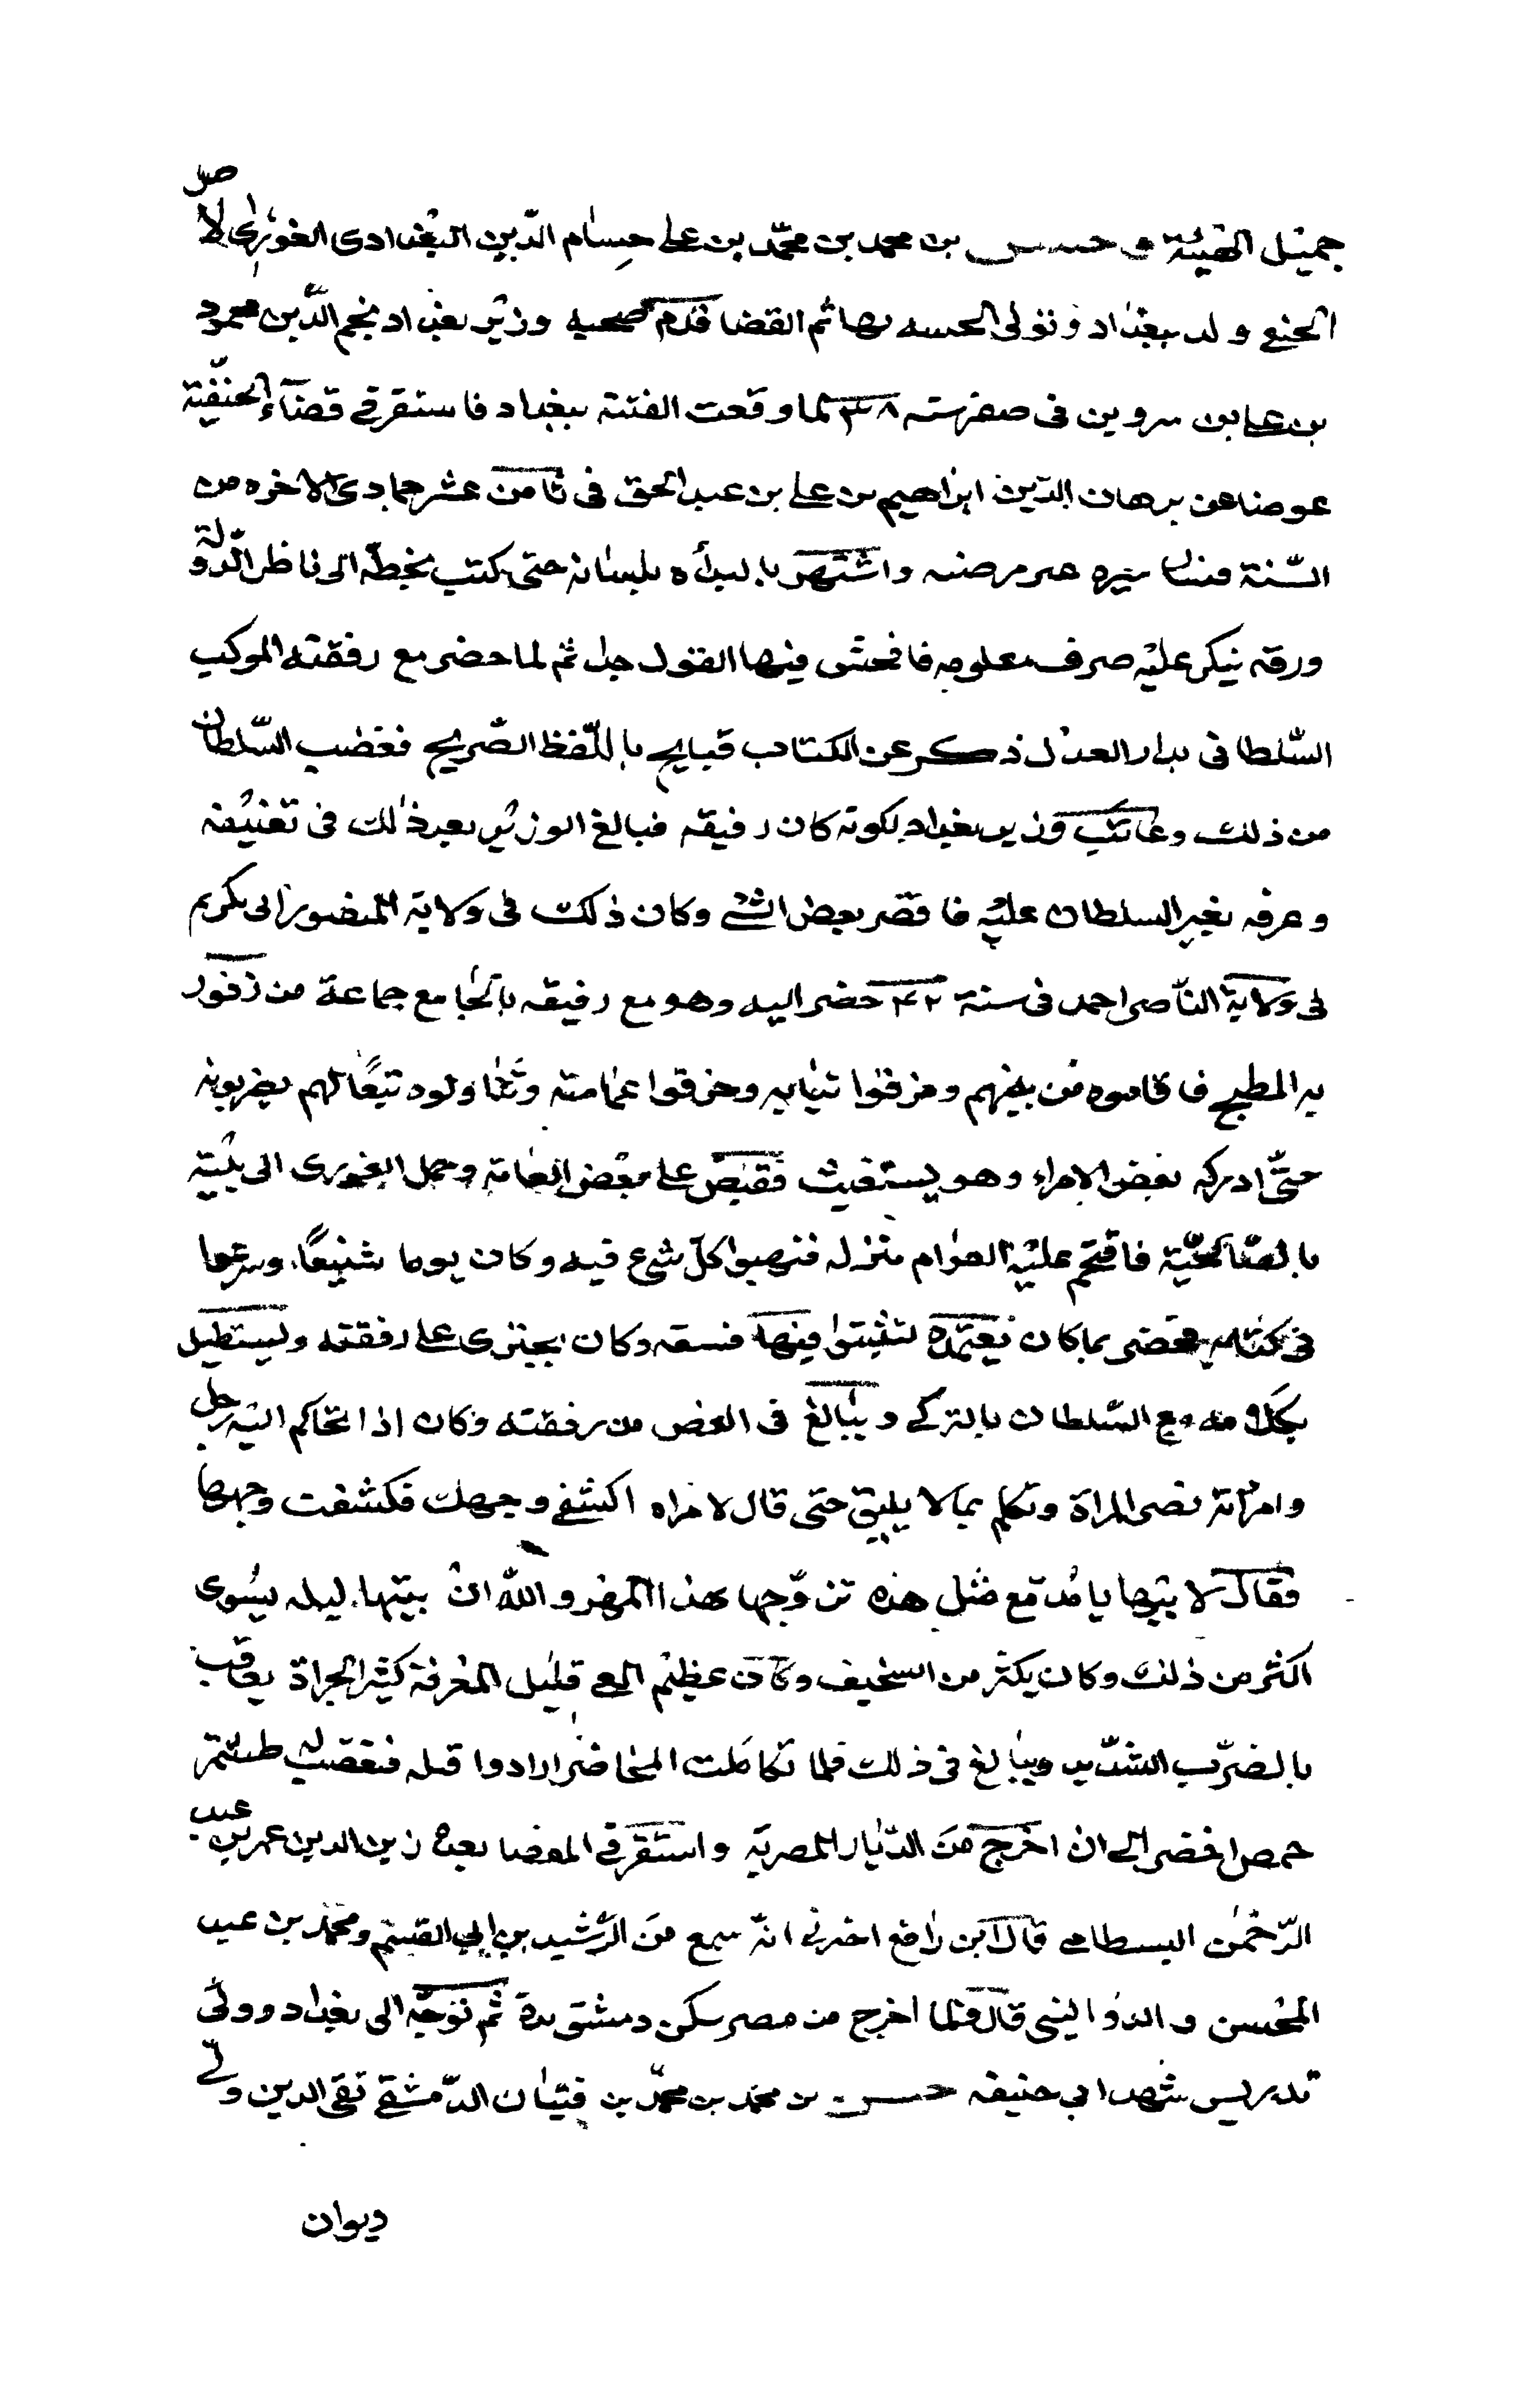 جميل الهيئة حسن بن محمد بن محمد بن علي حسام الدين البغدادى الغورى الاصل
الحنفى ولد ببغداد وتولى الحسبه بها ثم القضا قدم صحبه وزير بغداد نجم الدين محمود
بن على بن سروين فى صفر سنه ٣٨ لما وقعت الفتنة ببغداد فاستقر فى قضاء الحنفية
عوضا عن برهان الدين ابراهيم بن على بن عبد الحق فى ثامن عشر جمادى الاخره من
السنة سيره واشتهر بالبذاه بلسانه حتى كتب بخطه الى ناظر الدولة
ورقه ينكر عليه صرف معلومه فافحش فيها القول جدا ثم لما حضر مع رفقته الموكب
السلطانى بدار العدل ذكر عن الكتاب قبايح باللفظ الصريح فغضب السلطان
من ذلك وعاتب وزير بغداد لكونه كان رفيقه فبالغ الوزير بعد ذلك فى تعنيفه
وعرفه تغير السلطان عليه فاقصر بعض الشى وكان ذلك فى ولاية المنصور ابى بكر ثم
فى ولاية الناصر احمد فى سنة ٤٢ حضر اليه وهو مع رفيقه بالجامع جماعة من زفور
يه المطبخ فاقاموه من بينهم وخرقوا ثيابه وخرقوا عمامته وتناولوه تبعا لهم يضربونه
حتى ادركه بعض الامراء وهو يستغيث فقبض على بعض العامة وحمل الغورى الى بيته
بالصالحية فاقتحم عليه العوام منزله فنهبوا كل شىء فيه وكان يوما شنيعا وسرعوا
فى كتابه محضر بما كان يعتمده لتثبتوا فيها فسقه وكان يجترى على رفقته ويستطيل
بكلامه مع السلطان بالتركى ويبالغ فى الغض من رفقته وكان اذا تحاكم اليه رجل
وامراته نصر المراة وتكلم بما لا يليق حتى قال لامراه اكشفى وجهك فكشفت وجهها
فقال لابيها يا مدمغ مثل هذه تزوجها بهذا المهر والله ان بيتها ليله يسوى
اكثر من ذلك وكان يكثر من السخيف وكان عظيم العى قليل المعرفة كثير الجراة يعاقب
بالضرب الشديد ويبالغ فى ذلك فلما تكاملت المحاضر ارادوا قتله فتعصب له طشتمر
حمص اخضر الى ان اخرج من الديار المصرية واستقر فى القضا بعده زين الدين عمر بن عبد
الرحمن البسطامى قال ابن رافع اخبرنى انه سمع من الرشيد بن ابى القسم ومحمد بن عبد
المحسن والدواليبى قال فلما اخرج من مصر سكن دمشق مدة ثم توجه الى بغداد وولى
تدريس مشهد ابى حنيفه حسن بن محمد بن محمد بن فتيان الدمشقى تقى الدين ولى
ديوان